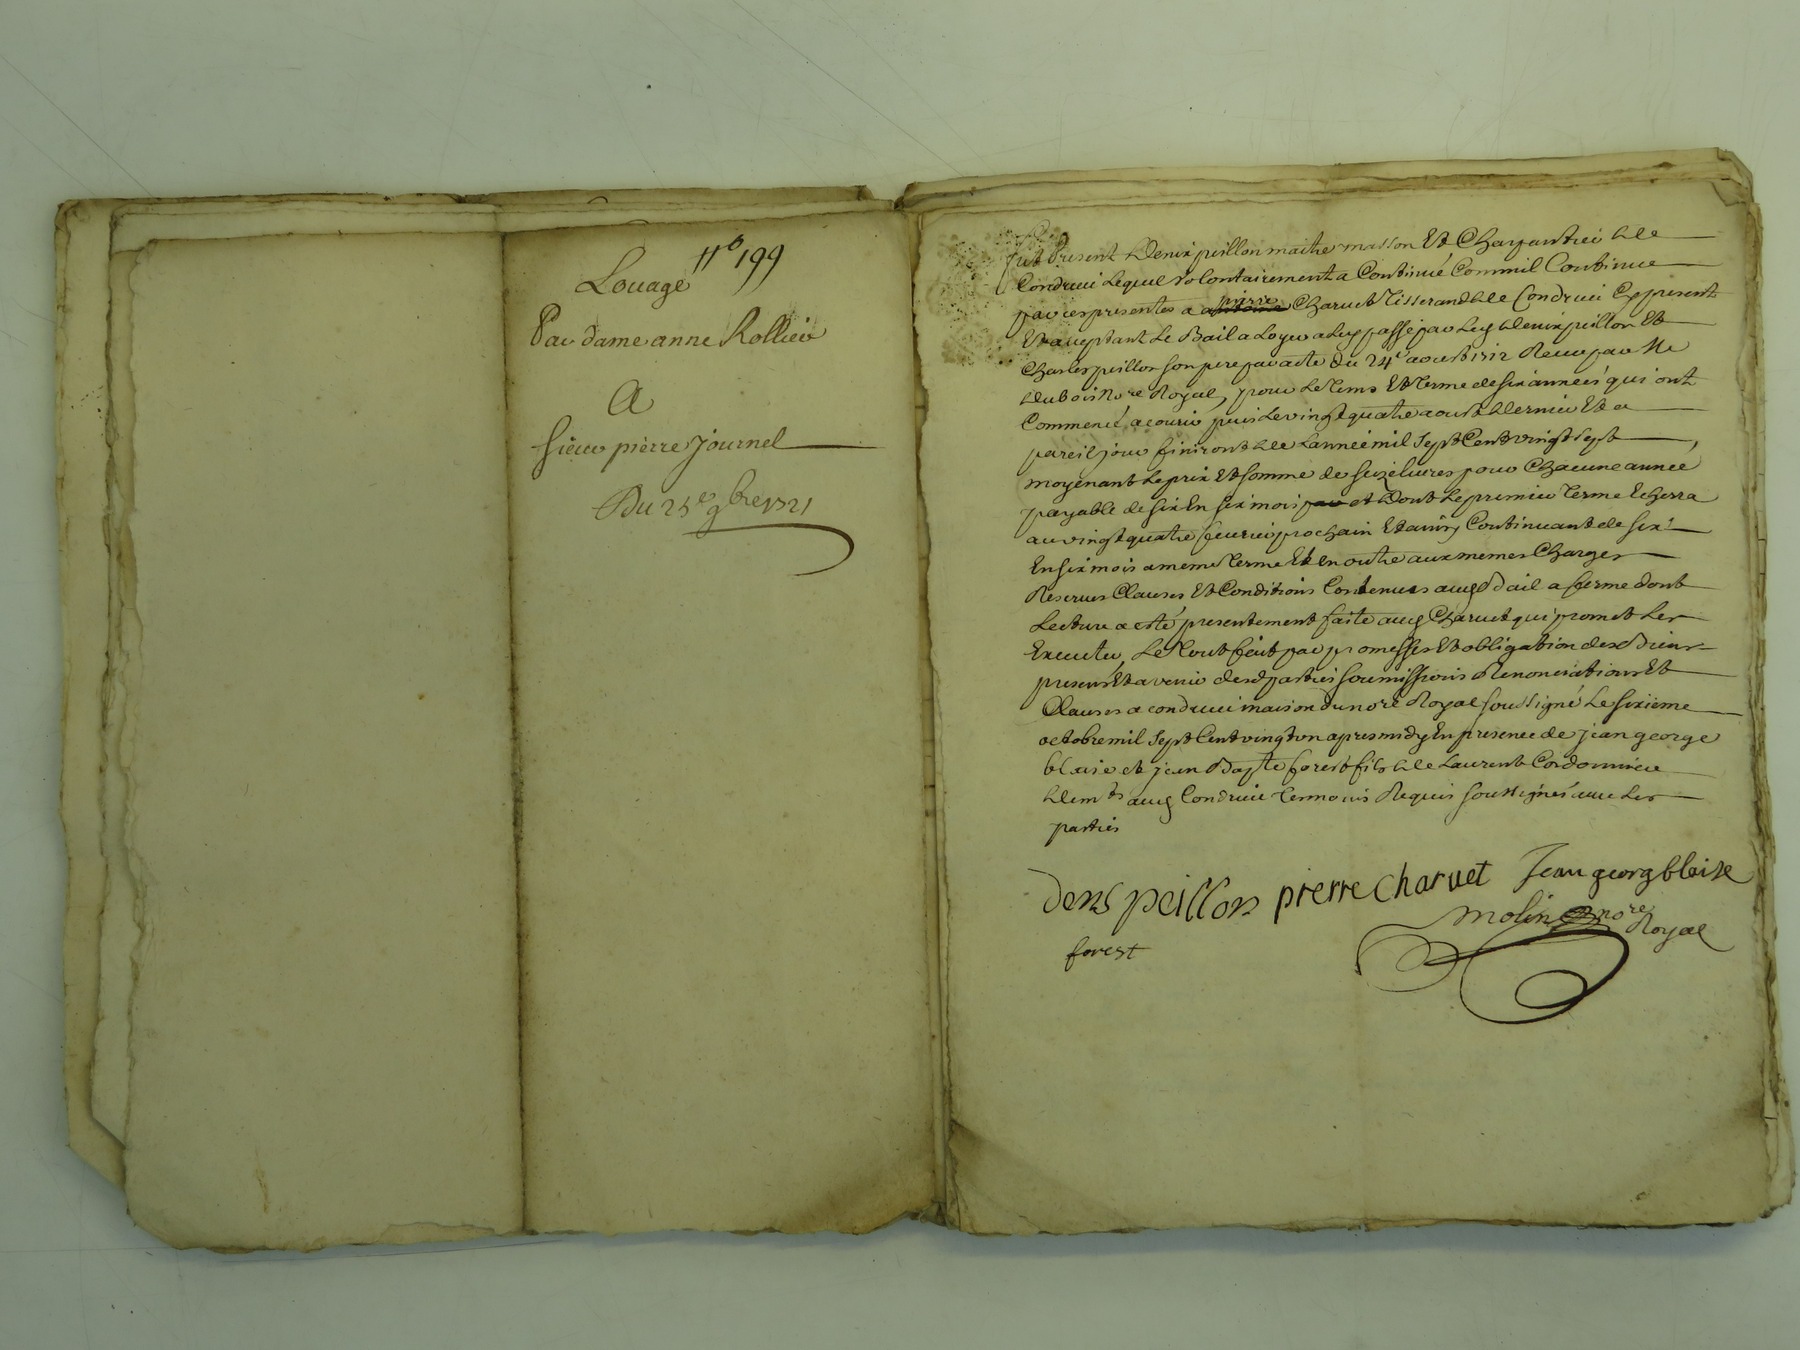 n° 199
Louage
Par dame anne Rollier
A
sieur pierre journel
Du 25e 9bre 1721
fut Present Denis peillon maitre masson Et Charpantier de
Condrieu Lequel volontairement a Continué Comme il Continue
par ces presentes a pierre Charvet Tisserand de Condrieu Cy present
Et acceptant Le Bail a Loyer a luy passé par Led Denis peillon Et
Charles peillon son pere par acte du 24e aoust 1712 Receu par Me
Dubois No.re Royal, pour Le Tems Et Terme de six années qui ont
Commencé a courir puis Le vingt quatre aoust Dernier Et a
pareil jour finiront de L'année mil sept Cent vingt sept
moyenant Le prix Et somme de seize livres pour Chacune année
payable de six En six mois et Dont Le premier Terme Echerra
au vingt quatre fevrier prochain Et ainsy Continuant de six
En six mois a meme Terme Et En outre aux memes Charges
Reserves Clauses Et Conditions Contenues aud Bail a ferme dont
Lecture a esté presentement faite aud Charvet qui promet Les
Executer, Le Tout fait par promesses Et obligation des Biens
presens Et a venir desd parties soumissions Renonciations Et
Clauses a condrieu maison du no.re Royal soussigné Le sixieme
octobre mil sept Cent vingt un apres midy En presence de jean george
blaise et jean Bapte forest fils de Laurent Cordonnier
Dem.ts aud Condrieu Temoins Requis soussignés avec Les
parties
denis peillon pierre charvet Jean georg blaise
molin no.re
Royal
forest